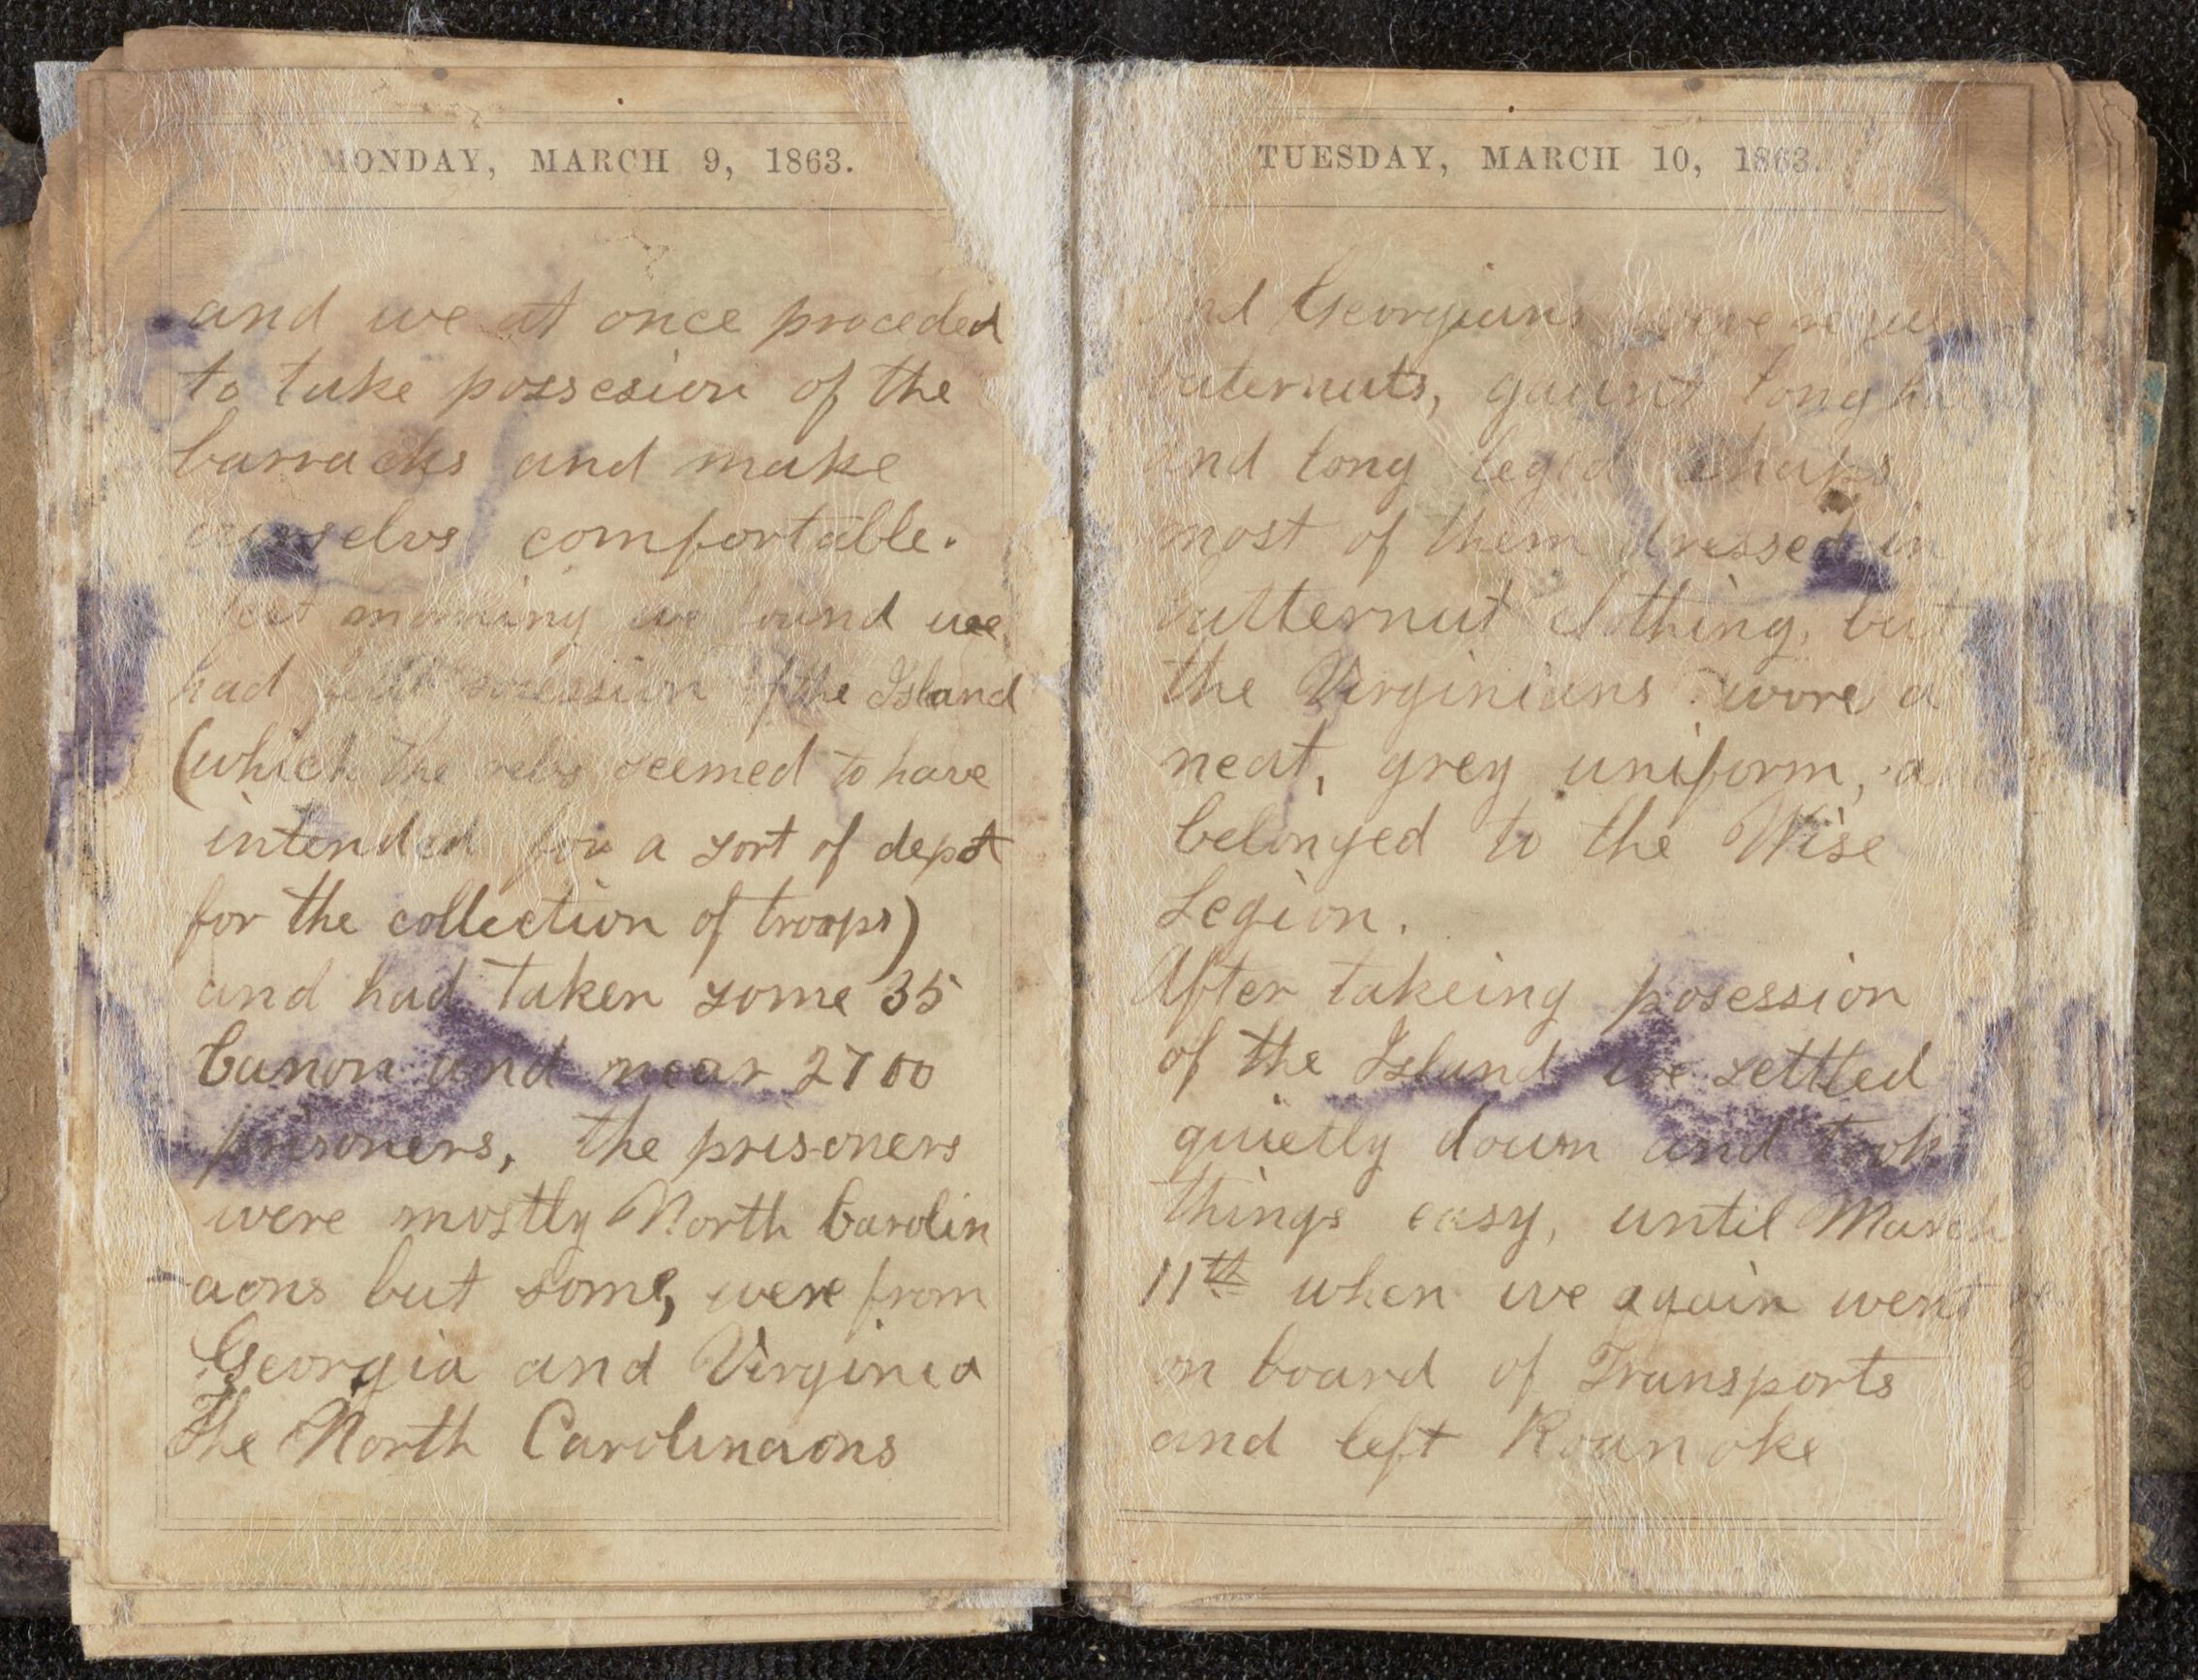 MONDAY, MARCH 9, 1863.
and we at once proceded
to take possesion of the
barracks and make
ourselvs comfortable.
morning we found we
had full posession of the Island
(which the rebs seemed to have
intended for a sort of depot
for the collection of troops)
and had taken some 35
Canon and near 2700
prisoners, the prisoners
were mostly North Carolin
-aons but some, were from
Georgia and Virginia
The North Carolinaons
TUESDAY, MARCH 10, 1863.
and Georgians were
buternuts, gaunt long
and long leged chaps
most of them dressed in
butternut clothing, but
the Virginians wore a
neat, grey uniform, a
belonged to the Wise
Legion.
After takeing posession
of the Island we settled
quietly down and took
things easy, until March
11th when we again went
on board of Transports
and left Roanoke